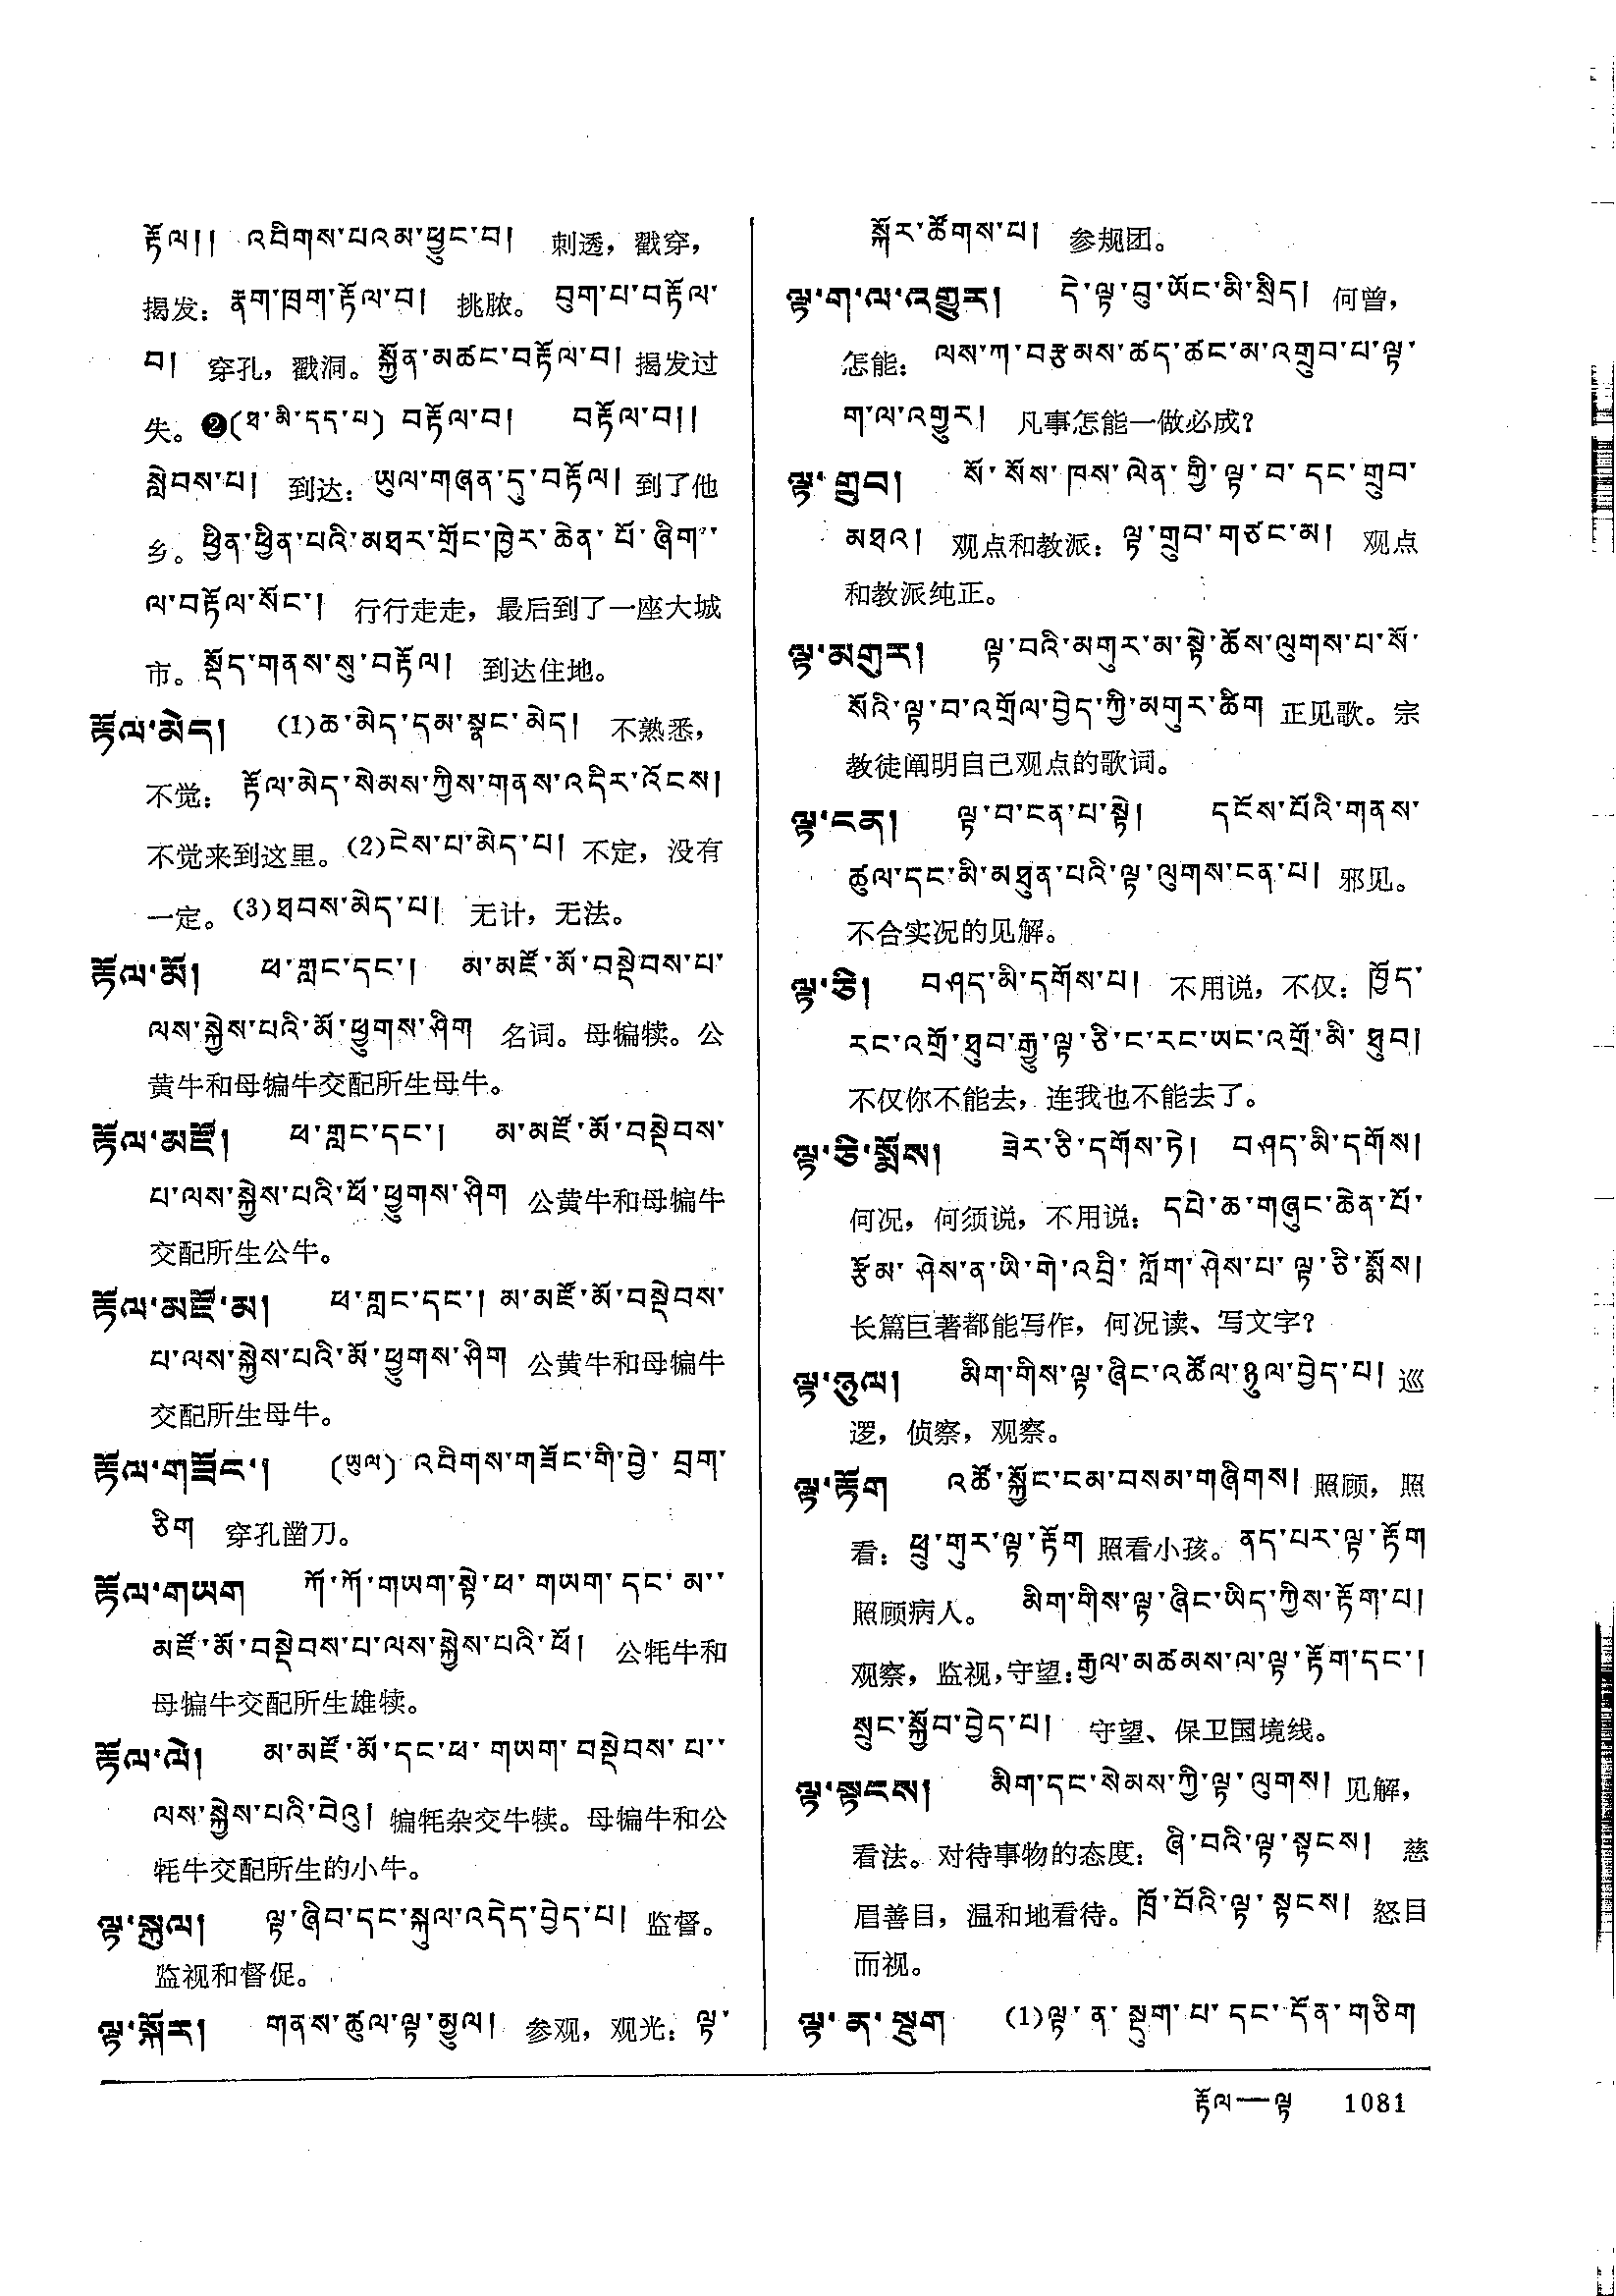 རྟོལ།། འབིགས་པའམ་ཕྱུང་བ། 刺透，戳穿，
揭发：རྣག་ཁྲག་རྟོལ་བ། 挑脓。 བུག་པ་བརྟོལ་
བ། 穿孔，戳洞。སྐྱོན་མཚང་བརྟོལ་བ། 揭发过
失。❷(ཐ་མི་དད་པ) བརྟོལ་བ། བརྟོལ་བ།།
སླེབས་པ། 到达：ཡུལ་གཞན་དུ་བརྟོལ། 到了他
乡。ཕྱིན་ཕྱིན་པའི་མཐར་གྲོང་ཁྱེར་ཆེན་པོ་ཞིག་
ལ་བརྟོལ་སོང་། 行行走走，最后到了一座大城
市。སྡོད་གནས་སུ་བརྟོལ། 到达住地。
རྟོལ་མེད། (1)ཆ་མེད་དམ་སྣང་མེད། 不熟悉，
不觉：རྟོལ་མེད་སེམས་ཀྱིས་གནས་འདིར་འོངས།
不觉来到这里。(2)ངེས་པ་མེད་པ། 不定，没有
一定。(3)ཐབས་མེད་པ། 无计，无法。
རྟོལ་མོ། ཕ་གླང་དང་། མ་མཛོ་མོ་བསྡེབས་པ་
ལས་སྐྱེས་པའི་མོ་ཕྱུགས་ཤིག 名词。母犏犊。公
黄牛和母犏牛交配所生母牛。
རྟོལ་མཛོ། ཕ་གླང་དང་། མ་མཛོ་མོ་བསྡེབས་
པ་ལས་སྐྱེས་པའི་ཕོ་ཕྱུགས་ཤིག 公黄牛和母犏牛
交配所生公牛。
རྟོལ་མཛོ་མ། ཕ་གླང་དང་། མ་མཛོ་མོ་བསྡེབས་
པ་ལས་སྐྱེས་པའི་མོ་ཕྱུགས་ཤིག 公黄牛和母犏牛
交配所生母牛。
རྟོལ་གཟོང་། (ཡུལ) འབིགས་གཟོང་གི་བྱེ་བྲག་
ཅིག 穿孔凿刀。
རྟོལ་གཡག ཀོ་ཀོ་གཡག་སྟེ་ཕ་གཡག་དང་མ་
མཛོ་མོ་བསྡེབས་པ་ལས་སྐྱེས་པའི་ཕོ། 公牦牛和
母犏牛交配所生雄犊。
རྟོལ་ལེ། མ་མཛོ་མོ་དང་ཕ་གཡག་བསྡེབས་པ་
ལས་སྐྱེས་པའི་བེའུ། 犏牦杂交牛犊。母犏牛和公
牦牛交配所生的小牛。
ལྟ་སྐུལ། ལྟ་ཞིབ་དང་སྐུལ་འདེད་བྱེད་པ། 监督。
监视和督促。
ལྟ་སྐོར། གནས་ཚུལ་ལྟ་མྱུལ། 参观，观光：ལྟ་
སྐོར་ཚོགས་པ། 参规团。
ལྟ་ག་ལ་འགྱུར། དེ་ལྟ་བུ་ཡོང་མི་སྲིད། 何曾，
怎能：ལས་ཀ་བརྩམས་ཚད་ཚང་མ་འགྲུབ་པ་ལྟ་
ག་ལ་འགྱུར། 凡事怎能一做必成？
ལྟ་གྲུབ། སོ་སོས་ཁས་ལེན་གྱི་ལྟ་བ་དང་གྲུབ་
མཐའ། 观点和教派：ལྟ་གྲུབ་གཙང་མ། 观点
和教派纯正。
ལྟ་མགུར། ལྟ་བའི་མགུར་མ་སྟེ་ཆོས་ལུགས་པ་སོ་
སོའི་ལྟ་བ་འགྲོལ་བྱེད་ཀྱི་མགུར་ཚིག 正见歌。宗
教徒阐明自己观点的歌词。
ལྟ་ངན། ལྟ་བ་ངན་པ་སྟེ། དངོས་པོའི་གནས་
ཚུལ་དང་མི་མཐུན་པའི་ལྟ་ལུགས་ངན་པ། 邪见。
不合实况的见解。
ལྟ་ཅི། བཤད་མི་དགོས་པ། 不用说，不仅：ཁྱོད་
རང་འགྲོ་ཐུབ་རྒྱུ་ལྟ་ཅི་ང་རང་ཡང་འགྲོ་མི་ཐུབ།
不仅你不能去，连我也不能去了。
ལྟ་ཅི་སྨོས། ཟེར་ཅི་དགོས་ཏེ། བཤད་མི་དགོས།
何况，何须说，不用说：དཔེ་ཆ་གཞུང་ཆེན་པོ་
རྩོམ་ཤེས་ན་ཡི་གེ་འབྲི་ཀློག་ཤེས་པ་ལྟ་ཅི་སྨོས།
长篇巨著都能写作，何况读、写文字？
ལྟ་ཉུལ། མིག་གིས་ལྟ་ཞིང་འཚོལ་ཉུལ་བྱེད་པ། 巡
逻，侦察，观察。
ལྟ་རྟོག འཚོ་སྐྱོང་ངམ་བསམ་གཞིགས། 照顾，照
看：ཕྲུ་གུར་ལྟ་རྟོག 照看小孩。ནད་པར་ལྟ་རྟོག
照顾病人。 མིག་གིས་ལྟ་ཞིང་ཡིད་ཀྱིས་རྟོག་པ།
观察，监视，守望：རྒྱལ་མཚམས་ལ་ལྟ་རྟོག་དང་།
སྲུང་སྐྱོབ་བྱེད་པ། 守望、保卫国境线。
ལྟ་སྟངས། མིག་དང་སེམས་ཀྱི་ལྟ་ལུགས། 见解，
看法。对待事物的态度：ཞི་བའི་ལྟ་སྟངས། 慈
眉善目，温和地看待。ཁྲོ་བོའི་ལྟ་སྟངས། 怒目
而视。
ལྟ་ན་སྡུག (1)ལྟ་ན་སྡུག་པ་དང་དོན་གཅིག
རྟོལ—ལྟ 1081